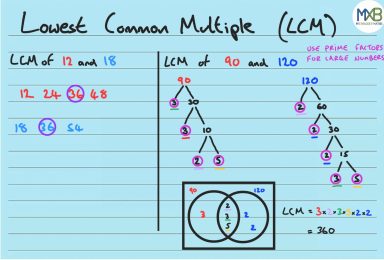 Lowest Common Multiple (LCM)
MXB
LCM of 12 and 18
12 24 36 48
18 36 54
LCM of 90 and 120
USE PRIME FACTORS
FOR LARGE NUMBERS
90
3 30
3 10
2 5
120
2 60
2 30
2 15
3 5
90 120
3 2 3 5 2 2
LCM = 3x2x3x5x2x2
= 360